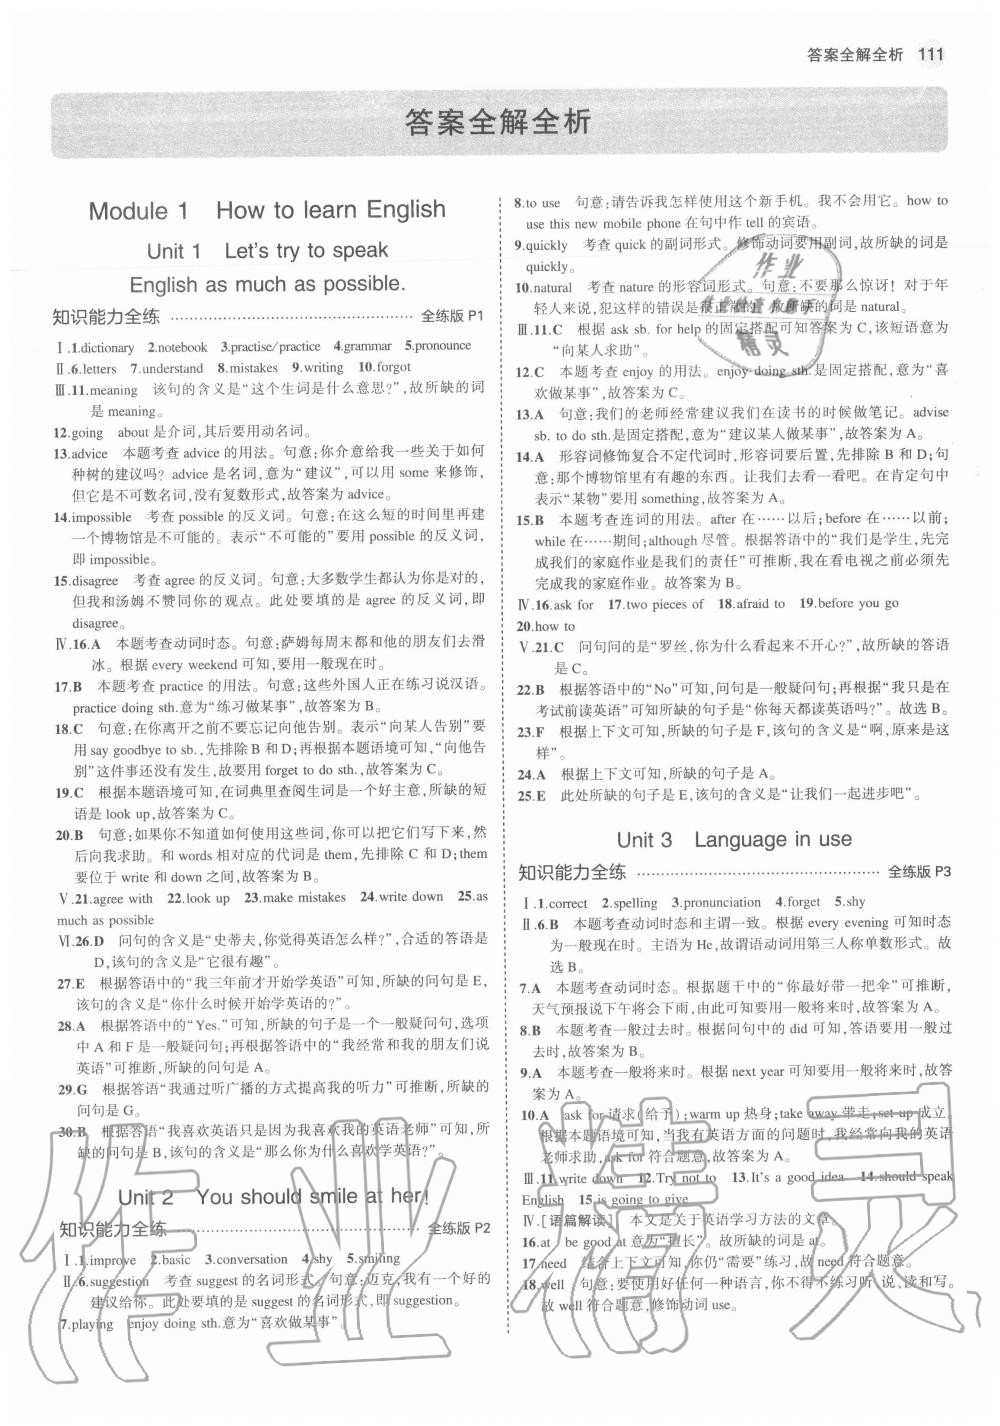 答案全解全析 111
答案全解全析
Module 1 How to learn English
Unit 1 Let's try to speak
English as much as possible.
知识能力全练 …… 全练版 P1
Ⅰ.1.dictionary 2.notebook 3.practise/practice 4.grammar 5.pronounce
Ⅱ.6.letters 7.understand 8.mistakes 9.writing 10.forgot
Ⅲ.11.meaning 该句的含义是“这个生词是什么意思?”,故所缺的词
是 meaning。
12.going about 是介词,其后要用动名词。
13.advice 本题考查 advice 的用法。句意:你介意给我一些关于如何
种树的建议吗? advice 是名词,意为“建议”,可以用 some 来修饰,
但它是不可数名词,没有复数形式,故答案为 advice。
14.impossible 考查 possible 的反义词。句意:在这么短的时间里再建
一个博物馆是不可能的。表示“不可能的”要用 possible 的反义词,
即 impossible。
15.disagree 考查 agree 的反义词。句意:大多数学生都认为你是对的,
但我和汤姆不赞同你的观点。此处要填的是 agree 的反义词,即
disagree。
Ⅳ.16.A 本题考查动词时态。句意:萨姆每周末都和他的朋友们去滑
冰。根据 every weekend 可知,要用一般现在时。
17.B 本题考查 practice 的用法。句意:这些外国人正在练习说汉语。
practice doing sth.意为“练习做某事”,故答案为 B。
18.C 句意:在你离开之前不要忘记向他告别。表示“向某人告别”要
用 say goodbye to sb.,先排除 B 和 D;再根据本题语境可知,“向他告
别”这件事还没有发生,故要用 forget to do sth.,故答案为 C。
19.C 根据本题语境可知,在词典里查阅生词是一个好主意,所缺的短
语是 look up,故答案为 C。
20.B 句意:如果你不知道如何使用这些词,你可以把它们写下来,然
后向我求助。和 words 相对应的代词是 them,先排除 C 和 D;them
要位于 write 和 down 之间,故答案为 B。
Ⅴ.21.agree with 22.look up 23.make mistakes 24.write down 25.as
much as possible
Ⅵ.26.D 问句的含义是“史蒂夫,你觉得英语怎么样?”,合适的答语是
D,该句的含义是“它很有趣”。
27.E 根据答语中的“我三年前才开始学英语”可知,所缺的问句是 E,
该句的含义是“你什么时候开始学英语的?”。
28.A 根据答语中的“Yes.”可知,所缺的句子是一个一般疑问句,选项
中 A 和 F 是一般疑问句;再根据答语中的“我经常和我的朋友们说
英语”可推断,所缺的问句是 A。
29.G 根据答语“我通过听广播的方式提高我的听力”可推断,所缺的
问句是 G。
30.B 根据答语“我喜欢英语只是因为我喜欢我的英语老师”可知,所
缺的问句是 B,该句的含义是“那么你为什么喜欢学英语?”。
Unit 2 You should smile at her!
知识能力全练 …… 全练版 P2
Ⅰ.1.improve 2.basic 3.conversation 4.shy 5.smiling
Ⅱ.6.suggestion 考查 suggest 的名词形式。句意:迈克,我有一个好的
建议给你。此处要填的是 suggest 的名词形式,即 suggestion。
7.playing enjoy doing sth.意为“喜欢做某事”。
8.to use 句意:请告诉我怎样使用这个新手机。我不会用它。how to
use this new mobile phone 在句中作 tell 的宾语。
9.quickly 考查 quick 的副词形式。修饰动词要用副词,故所缺的词是
quickly。
10.natural 考查 nature 的形容词形式。句意:不要那么惊讶! 对于年
轻人来说,犯这样的错误是很正常的。故所缺的词是 natural。
Ⅲ.11.C 根据 ask sb. for help 的固定搭配可知答案为 C,该短语意为
“向某人求助”。
12.C 本题考查 enjoy 的用法。enjoy doing sth.是固定搭配,意为“喜
欢做某事”,故答案为 C。
13.A 句意:我们的老师经常建议我们在读书的时候做笔记。advise
sb. to do sth.是固定搭配,意为“建议某人做某事”,故答案为 A。
14.A 形容词修饰复合不定代词时,形容词要后置,先排除 B 和 D;句
意:那个博物馆里有有趣的东西。让我们去看一看吧。在肯定句中
表示“某物”要用 something,故答案为 A。
15.B 本题考查连词的用法。after 在……以后;before 在……以前;
while 在……期间;although 尽管。根据答语中的“我们是学生,先完
成我们的家庭作业是我们的责任”可推断,我在看电视之前必须先
完成我的家庭作业。故答案为 B。
Ⅳ.16.ask for 17.two pieces of 18.afraid to 19.before you go
20.how to
Ⅴ.21.C 问句问的是“罗丝,你为什么看起来不开心?”,故所缺的答语
是 C。
22.B 根据答语中的“No”可知,问句是一般疑问句;再根据“我只是在
考试前读英语”可知所缺的句子是“你每天都读英语吗?”。故选 B。
23.F 根据上下文可知,所缺的句子是 F,该句的含义是“啊,原来是这
样”。
24.A 根据上下文可知,所缺的句子是 A。
25.E 此处所缺的句子是 E,该句的含义是“让我们一起进步吧”。
Unit 3 Language in use
知识能力全练 …… 全练版 P3
Ⅰ.1.correct 2.spelling 3.pronunciation 4.forget 5.shy
Ⅱ.6.B 本题考查动词时态和主谓一致。根据 every evening 可知时态
为一般现在时。主语为 He,故谓语动词用第三人称单数形式。故
选 B。
7.A 本题考查动词时态。根据题干中的“你最好带一把伞”可推断,
天气预报说下午将会下雨,由此可知要用一般将来时,故答案为 A。
8.B 本题考查一般过去时。根据问句中的 did 可知,答语要用一般过
去时,故答案为 B。
9.A 本题考查一般将来时。根据 next year 可知要用一般将来时,故答
案为 A。
10.A ask for 请求(给予);warm up 热身;take away 带走;set up 成立。
根据本题语境可知,当我有英语方面的问题时,我经常向我的英语
老师求助,ask for 符合题意,故答案为 A。
Ⅲ.11.write down 12.Try not to 13.It's a good idea 14.should speak
English 15.is going to give
Ⅳ.[语篇解读] 本文是关于英语学习方法的文章。
16.at be good at 意为“擅长”。故所缺的词是 at。
17.need 结合上下文可知,你仍“需要”练习,故 need 符合题意。
18.well 句意:要使用好任何一种语言,你不得不练习听、说、读和写。
故 well 符合题意,修饰动词 use。
作业
精灵
作业精灵